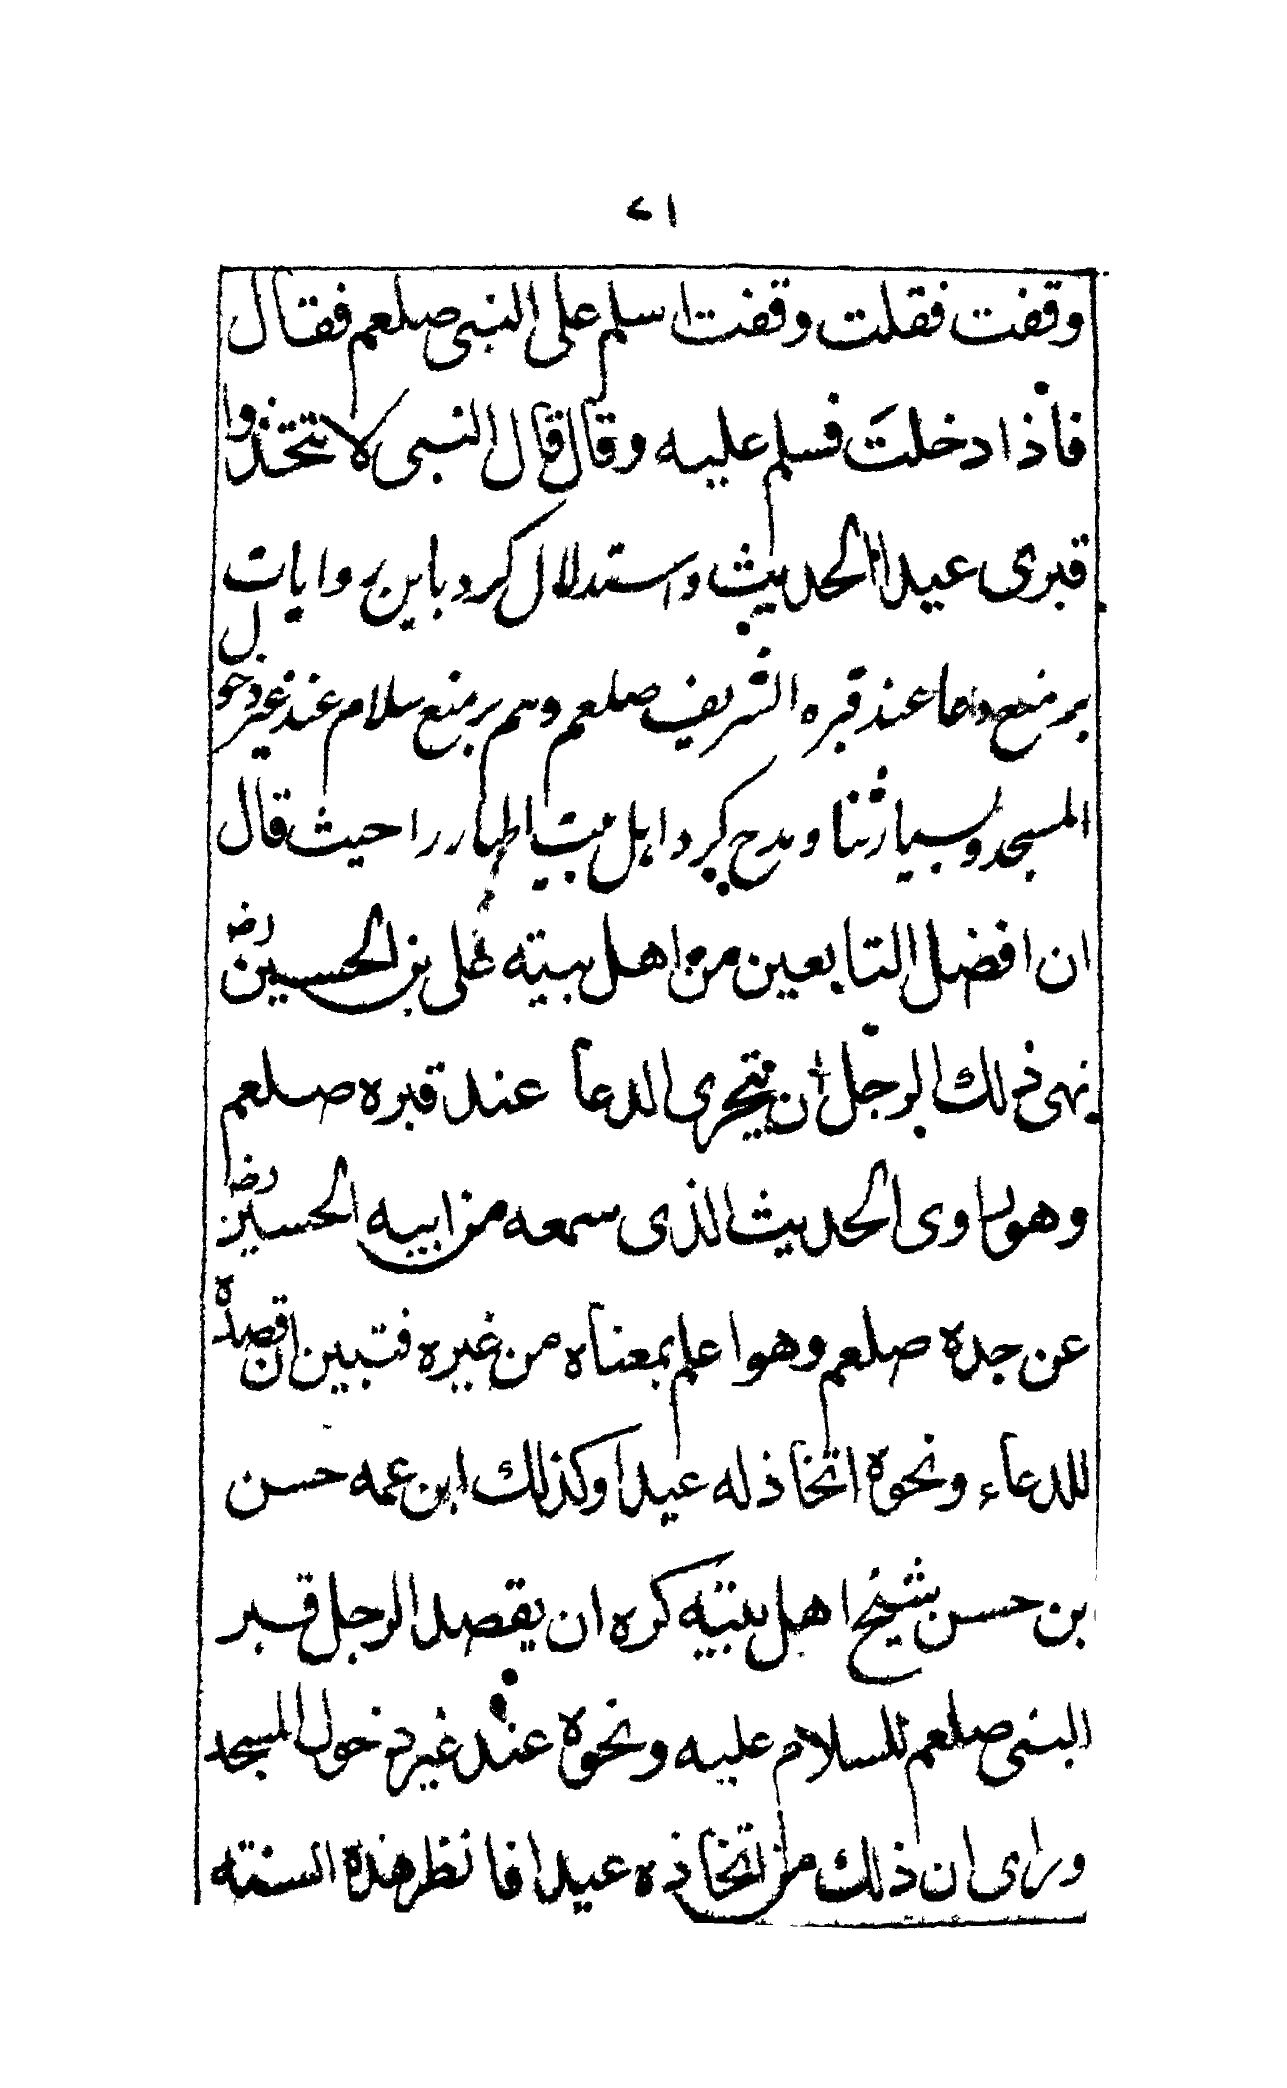 ۷۱
وقفت فقلت وقفت اسلم على النبى صلعم فقال
فاذا دخلت فسلم عليه وقال قال النبى لا تتخذوا
قبرى عيدا الحديث واستدلال كرد باين روايات
بر منع دعا عند قبره الشريف صلعم وهم بر منع سلام عند غير دخول
المسجد وبسيار ثنا ومدح كرد اهل بيت اطهار را حيث قال
ان افضل التابعين من اهل بيته على بن الحسين رض
نهى ذلك الرجل ان يتحرى الدعا عند قبره صلعم
وهو راوى الحديث الذى سمعه من ابيه الحسين رض
عن جده صلعم وهو اعلم بمعناه من غيره فتبين ان قصده
للدعاء ونحوه اتخاذ له عيدا وكذلك ابن عمه حسن
بن حسن شيخ اهل بيته كره ان يقصد الرجل قبر
النبى صلعم للسلام عليه ونحوه عند غير دخول المسجد
وراى ان ذلك من اتخاذه عيدا فانظر هذه السنته